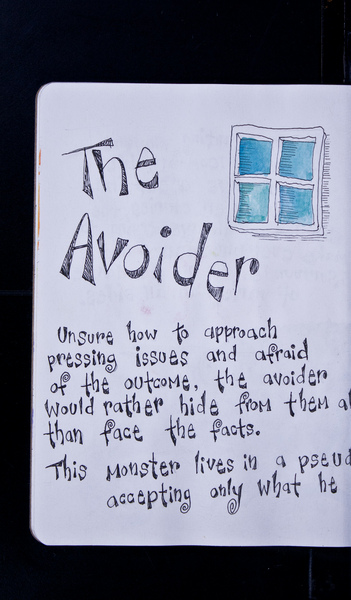 The
Avoider
Unsure how to approach
pressing issues and afraid
of the outcome, the avoider
would rather hide from them
than face the facts.
This monster lives in a
accepting only what he